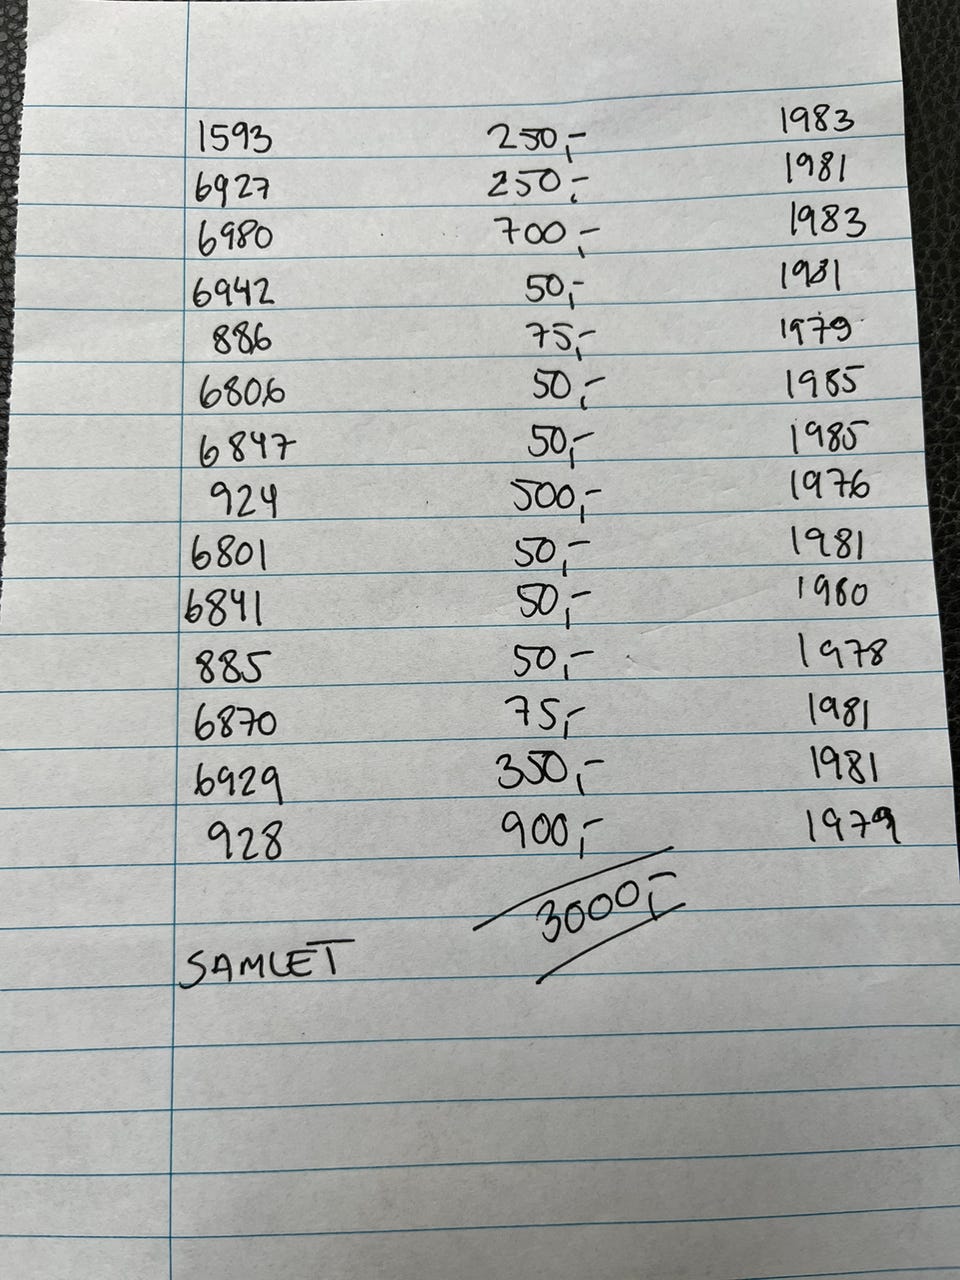 1593 250,- 1983
6927 250,- 1981
6980 700,- 1983
6942 50,- 1981
886 75,- 1979
6806 50,- 1985
6847 50,- 1985
924 500,- 1976
6801 50,- 1981
6841 50,- 1980
885 50,- 1978
6870 75,- 1981
6929 350,- 1981
928 900,- 1979
3000,-
SAMLET